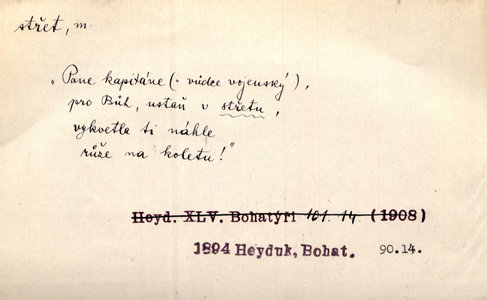 střet, m.
„Pane kapitáne (= vůdce vojenský),
pro Bůh, ustaň v střetu,
vykvetla ti náhle
růže na koletu!"
Heyd. XLV. Bohatýři 101. 14. (1908)
1894 Heyduk, Bohat. 90.14.